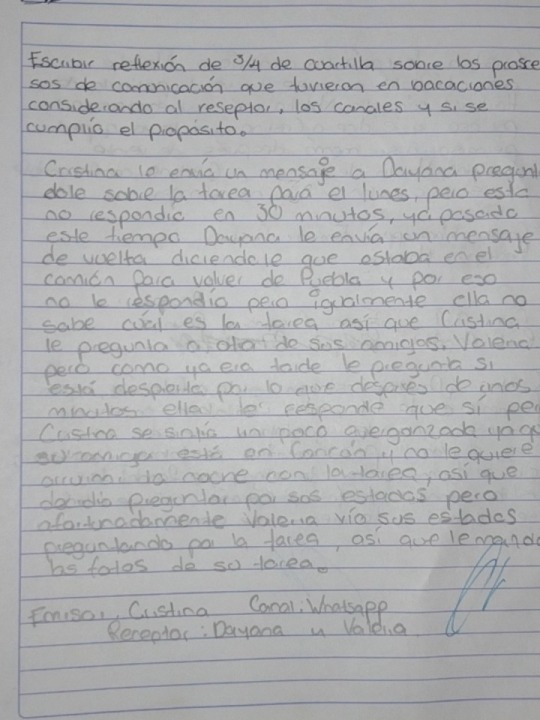 Escribir reflexión de 3/4 de cuartilla sobre los prosce
sos de comunicación que tuvieron en bacaciones
considerando al reseptor, los canales y si se
cumplió el proposito.
Cristina le envía un mensaje a Dayana pregunt
dole sobre la tarea para el lunes, pero esta
no respondio en 30 minutos, ya pasado
este tiempo Dayana le envía un mensaje
de vuelta diciendole que estaba en el
camión para volver de Puebla y por eso
no le respondío pero igualmente ella no
sabe cuál es la tarea así que Cristina
le pregunta a otra de sus amigas, Valeria
pero como ya era tarde le pregunta si
está despierta por lo que después de unos
minutos ella le responde que sí pe
Cristina se sintió un poco avergonzada ya q
su amiga está en Cancún y no le quiere
arruinar la noche con la tarea, así que
decidio preguntar por sus estados pero
afortunadamente Valeria vío sus estados
preguntando por la tarea, así que le mando
las fotos de su tarea.
Emisor: Cristina Canal: Whatsapp
Receptor: Dayana y Valeria